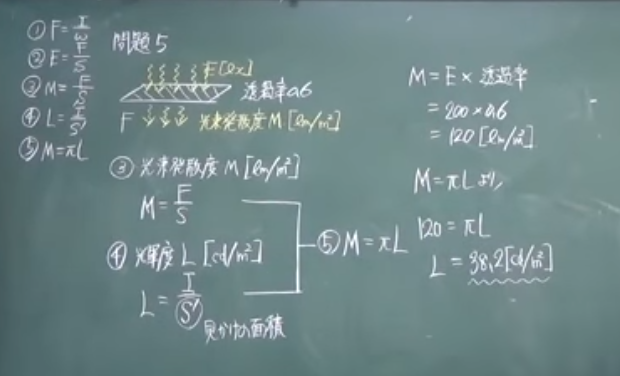 ① F = I/ω
② E = F/S
③ M = F/S
④ L = I/S'
⑤ M = πL
問題 5
E [lx]
透過率 0.6
F
光束発散度 M [lm/m²]
③ 光束発散度 M [lm/m²]
M = F/S
④ 輝度 L [cd/m²]
L = I/S'
見かけの面積
⑤ M = πL
M = E × 透過率
= 200 × 0.6
= 120 [lm/m²]
M = πL より、
120 = πL
L = 38.2 [cd/m²]